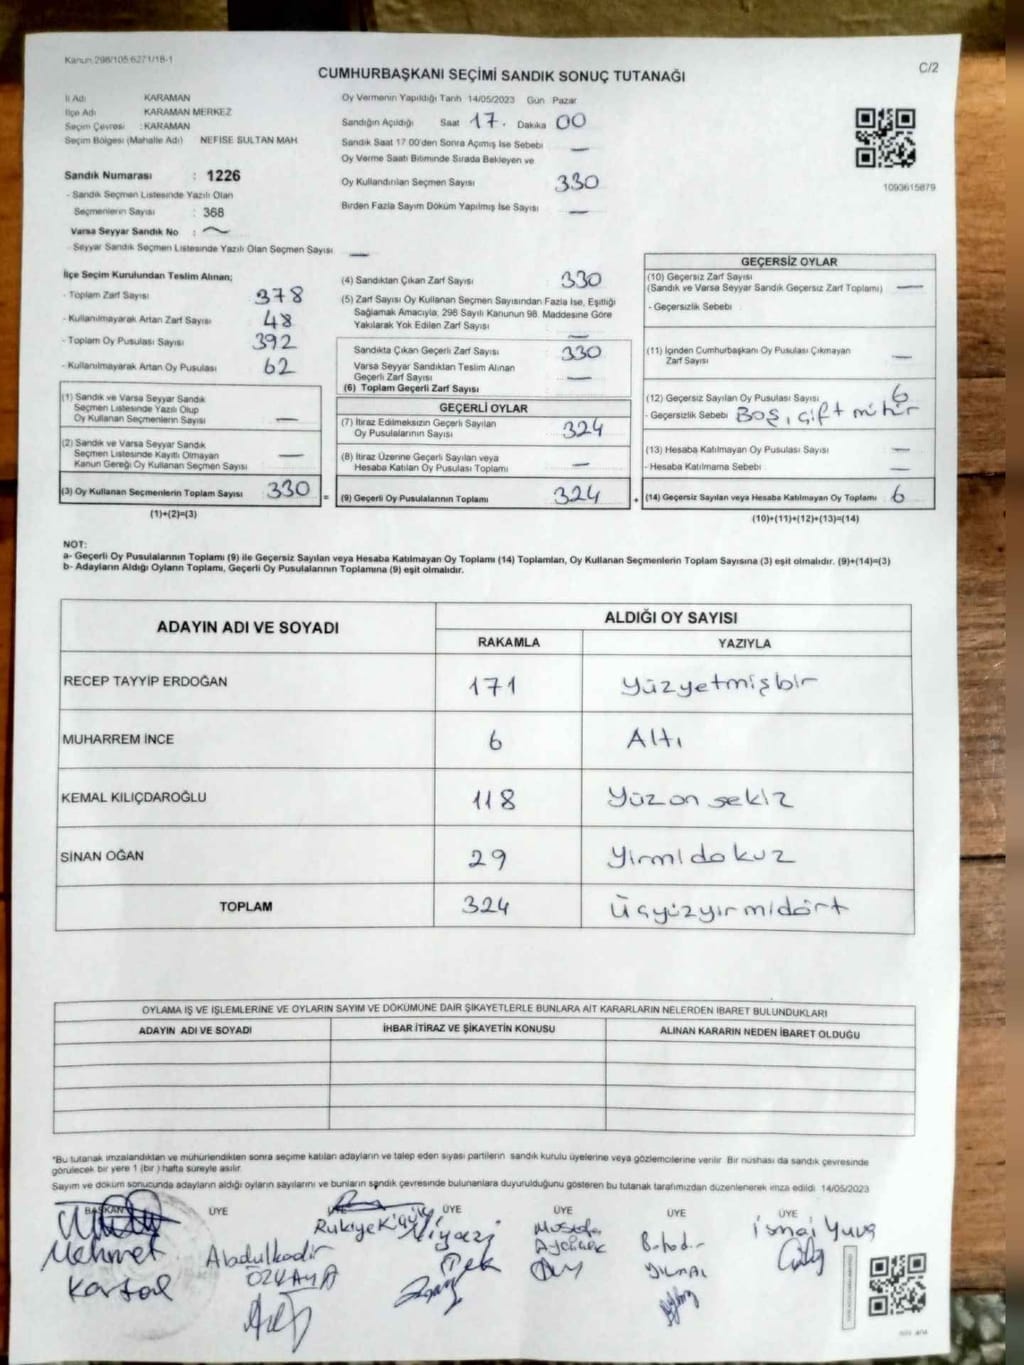 Kanun 298/105 6271/18-1
C/2
CUMHURBAŞKANI SEÇİMİ SANDIK SONUÇ TUTANAĞI
İl Adı KARAMAN
İlçe Adı KARAMAN MERKEZ
Seçim Çevresi : KARAMAN
Seçim Bölgesi (Mahalle Adı) NEFİSE SULTAN MAH
Sandık Numarası : 1226
- Sandık Seçmen Listesinde Yazılı Olan
Seçmenlerin Sayısı : 368
Varsa Seyyar Sandık No :
- Seyyar Sandık Seçmen Listesinde Yazılı Olan Seçmen Sayısı —
Oy Vermenin Yapıldığı Tarih 14/05/2023 Gün Pazar
Sandığın Açıldığı Saat 17. Dakika 00
Sandık Saat 17 00'den Sonra Açımış İse Sebebi —
Oy Verme Saati Bitiminde Sırada Bekleyen ve
Oy Kullandırılan Seçmen Sayısı 330
Birden Fazla Sayım Döküm Yapılmış İse Sayısı —
1093615879
İlçe Seçim Kurulundan Teslim Alınan;
- Toplam Zarf Sayısı 378
- Kullanılmayarak Artan Zarf Sayısı 48
- Toplam Oy Pusulası Sayısı 392
- Kullanılmayarak Artan Oy Pusulası 62
(1) Sandık ve Varsa Seyyar Sandık
Seçmen Listesinde Yazılı Olup
Oy Kullanan Seçmenlerin Sayısı —
(2) Sandık ve Varsa Seyyar Sandık
Seçmen Listesinde Kayıtlı Olmayan
Kanun Gereği Oy Kullanan Seçmen Sayısı —
(3) Oy Kullanan Seçmenlerin Toplam Sayısı 330 =
(1)+(2)=(3)
(4) Sandıktan Çıkan Zarf Sayısı 330
(5) Zarf Sayısı Oy Kullanan Seçmen Sayısından Fazla İse, Eşitliği
Sağlamak Amacıyla, 298 Sayılı Kanunun 98. Maddesine Göre
Yakılarak Yok Edilen Zarf Sayısı —
Sandıkta Çıkan Geçerli Zarf Sayısı 330
Varsa Seyyar Sandıktan Teslim Alınan
Geçerli Zarf Sayısı —
(6) Toplam Geçerli Zarf Sayısı
GEÇERLİ OYLAR
(7) İtiraz Edilmeksizin Geçerli Sayılan
Oy Pusulalarının Sayısı 324
(8) İtiraz Üzerine Geçerli Sayılan veya
Hesaba Katılan Oy Pusulası Toplamı —
(9) Geçerli Oy Pusulalarının Toplamı 324 +
GEÇERSİZ OYLAR
(10) Geçersiz Zarf Sayısı
(Sandık ve Varsa Seyyar Sandık Geçersiz Zarf Toplamı) —
- Geçersizlik Sebebi
(11) İçinden Cumhurbaşkanı Oy Pusulası Çıkmayan
Zarf Sayısı —
(12) Geçersiz Sayılan Oy Pusulası Sayısı 6
- Geçersizlik Sebebi Boş, çift mühür
(13) Hesaba Katılmayan Oy Pusulası Sayısı —
- Hesaba Katılmama Sebebi —
(14) Geçersiz Sayılan veya Hesaba Katılmayan Oy Toplamı 6
(10)+(11)+(12)+(13)=(14)
NOT:
a- Geçerli Oy Pusulalarının Toplamı (9) ile Geçersiz Sayılan veya Hesaba Katılmayan Oy Toplamı (14) Toplamları, Oy Kullanan Seçmenlerin Toplam Sayısına (3) eşit olmalıdır. (9)+(14)=(3)
b- Adayların Aldığı Oyların Toplamı, Geçerli Oy Pusulalarının Toplamına (9) eşit olmalıdır.
ADAYIN ADI VE SOYADI ALDIĞI OY SAYISI
RAKAMLA YAZIYLA
RECEP TAYYİP ERDOĞAN 171 Yüzyetmişbir
MUHARREM İNCE 6 Altı
KEMAL KILIÇDAROĞLU 118 Yüzon sekiz
SİNAN OĞAN 29 Yirmidokuz
TOPLAM 324 Üçyüzyirmidört
OYLAMA İŞ VE İŞLEMLERİNE VE OYLARIN SAYIM VE DÖKÜMÜNE DAİR ŞİKAYETLERLE BUNLARA AİT KARARLARIN NELERDEN İBARET BULUNDUKLARI
ADAYIN ADI VE SOYADI İHBAR İTİRAZ VE ŞİKAYETİN KONUSU ALINAN KARARIN NEDEN İBARET OLDUĞU
*Bu tutanak imzalandıktan ve mühürlendikten sonra seçime katılan adayların ve talep eden siyasi partilerin sandık kurulu üyelerine veya gözlemcilerine verilir. Bir nüshası da sandık çevresinde
görülecek bir yere 1 (bir ) hafta süreyle asılır.
Sayım ve döküm sonucunda adayların aldığı oyların sayılarını ve bunların sandık çevresinde bulunanlara duyurulduğunu gösteren bu tutanak tarafımızdan düzenlenerek imza edildi. 14/05/2023
BAŞKAN ÜYE ÜYE ÜYE ÜYE ÜYE
Mehmet
Kartal
Abdulkadir
ÖZKAYA
Rukiye
Niyazi
Mustafa
YILMAZ